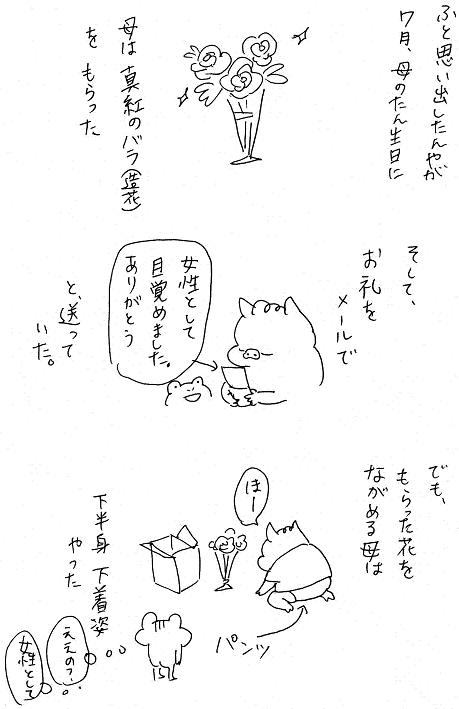 ふと思い出したんやが
7月、母のたん生日に
母は真紅のバラ(造花)
をもらった
そして、
お礼を
メールで
女性として
目覚めました。
ありがとう
と、送って
いた。
でも、
もらった花を
ながめる母は
ほー
下半身下着姿
やった
パンツ
ええの?…
女性として